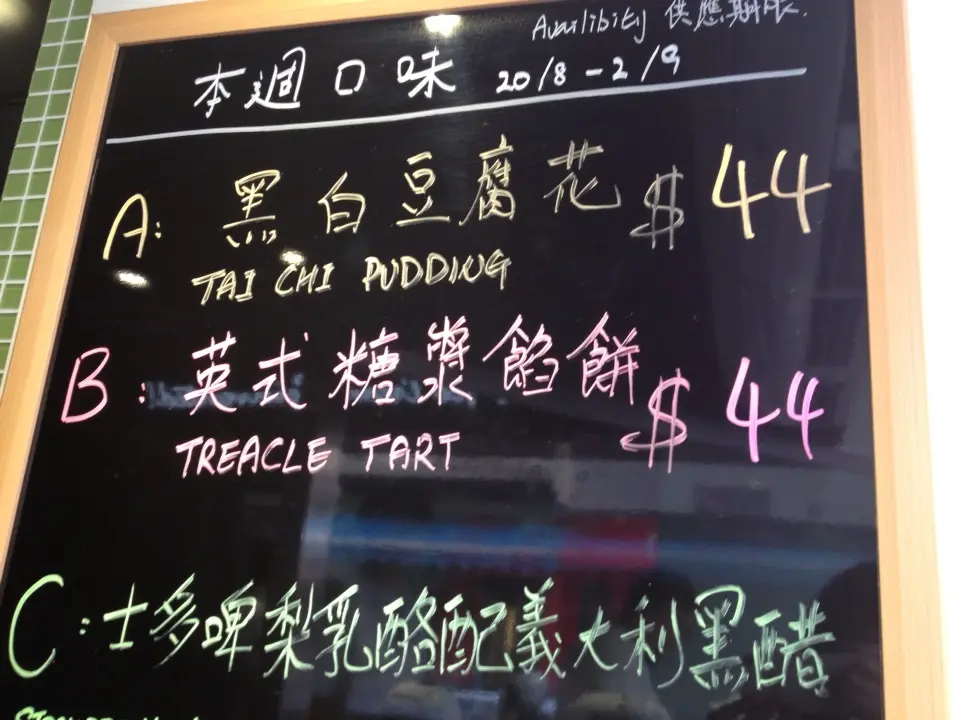 Availibity 供應期限.
本週口味 20/8 - 2/9
A: 黑白豆腐花 $44
TAI CHI PUDDING
B: 英式糖漿餡餅 $44
TREACLE TART
C: 士多啤梨乳酪配義大利黑醋